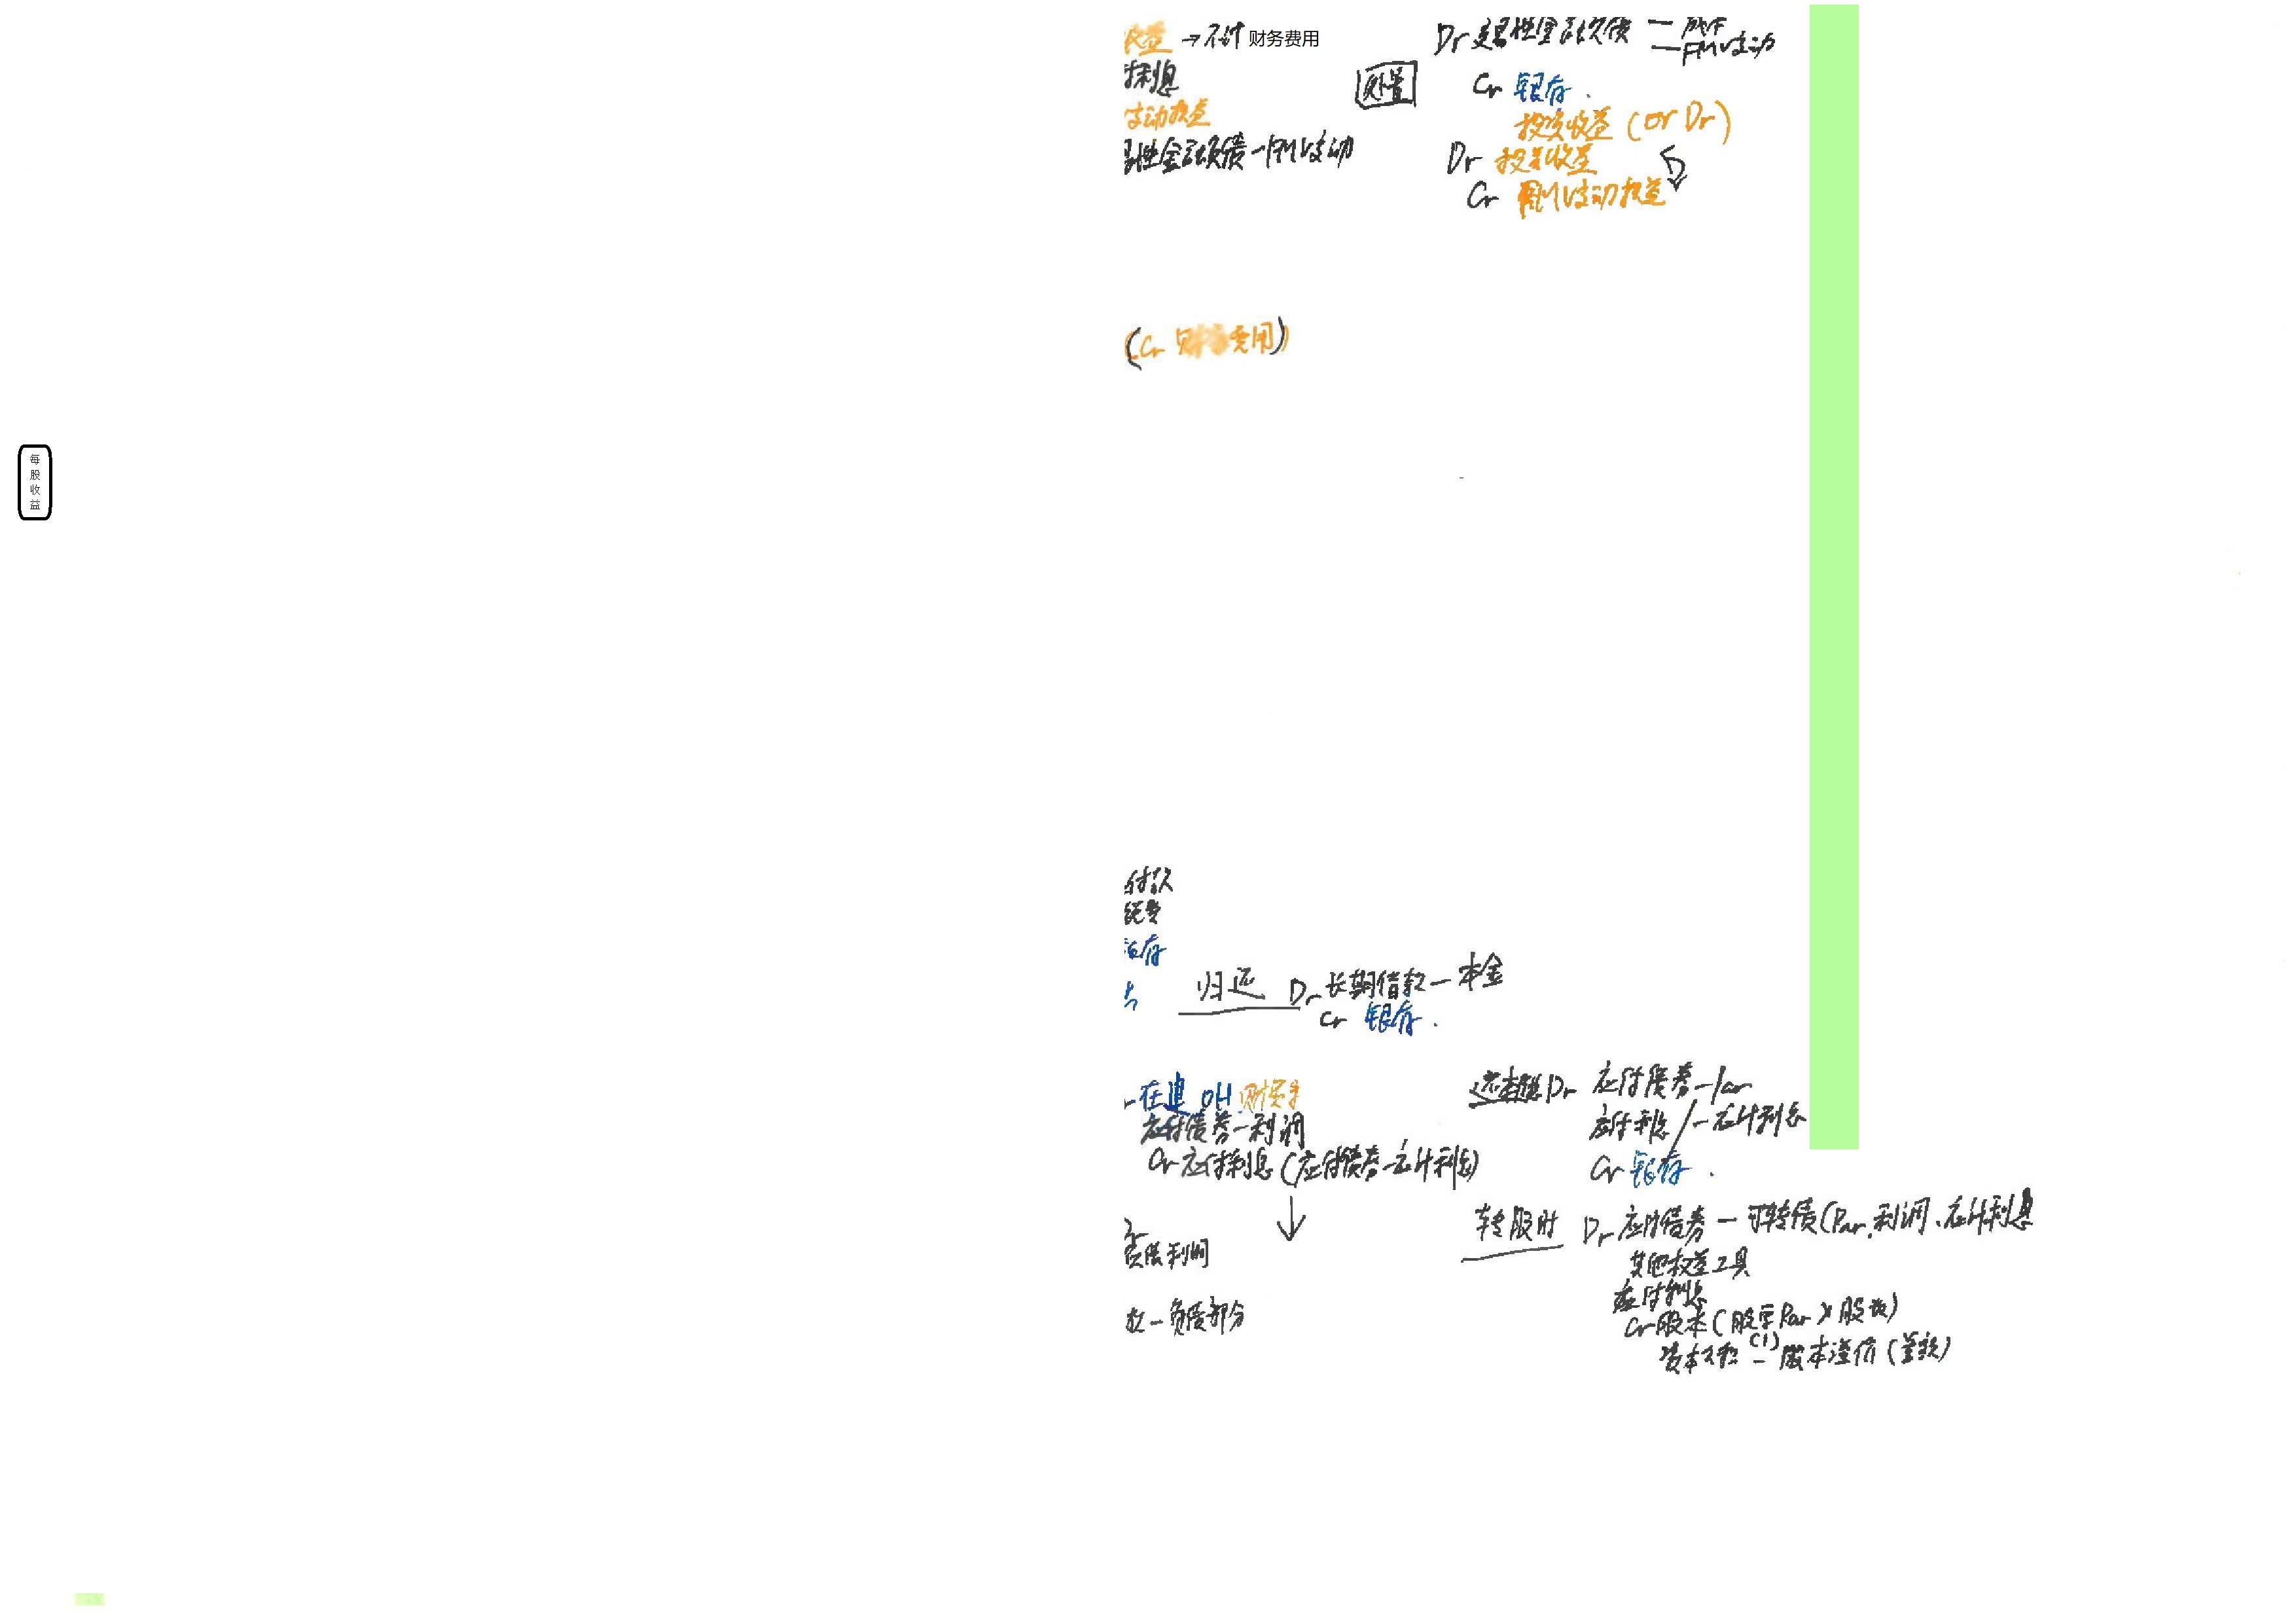 收益 → 不计 财务费用
付利息
变动损益
易性金融负债-FMV变动
处置
Dr 交易性金融负债 — 成本
— FMV变动
Cr 银存.
投资收益 (or Dr)
Dr 投资收益
Cr FMV变动损益
(Cr 财务费用)
每
股
收
益
付款
归还 Dr 长期借款 - 本金
Cr 银存.
在建 OH 财费
应付债券-利调
Cr 应付利息 (应付债券-应计利息)
还本息 Dr 应付债券-Par
应付利息/-应计利息
Cr 银存.
负债利调
-负债部分
转股时 Dr 应付债券-可转债(Par、利调、应计利息
其他权益工具
应付利息
Cr 股本(股票Par×股数)
(1)
资本公积-股本溢价(差额)